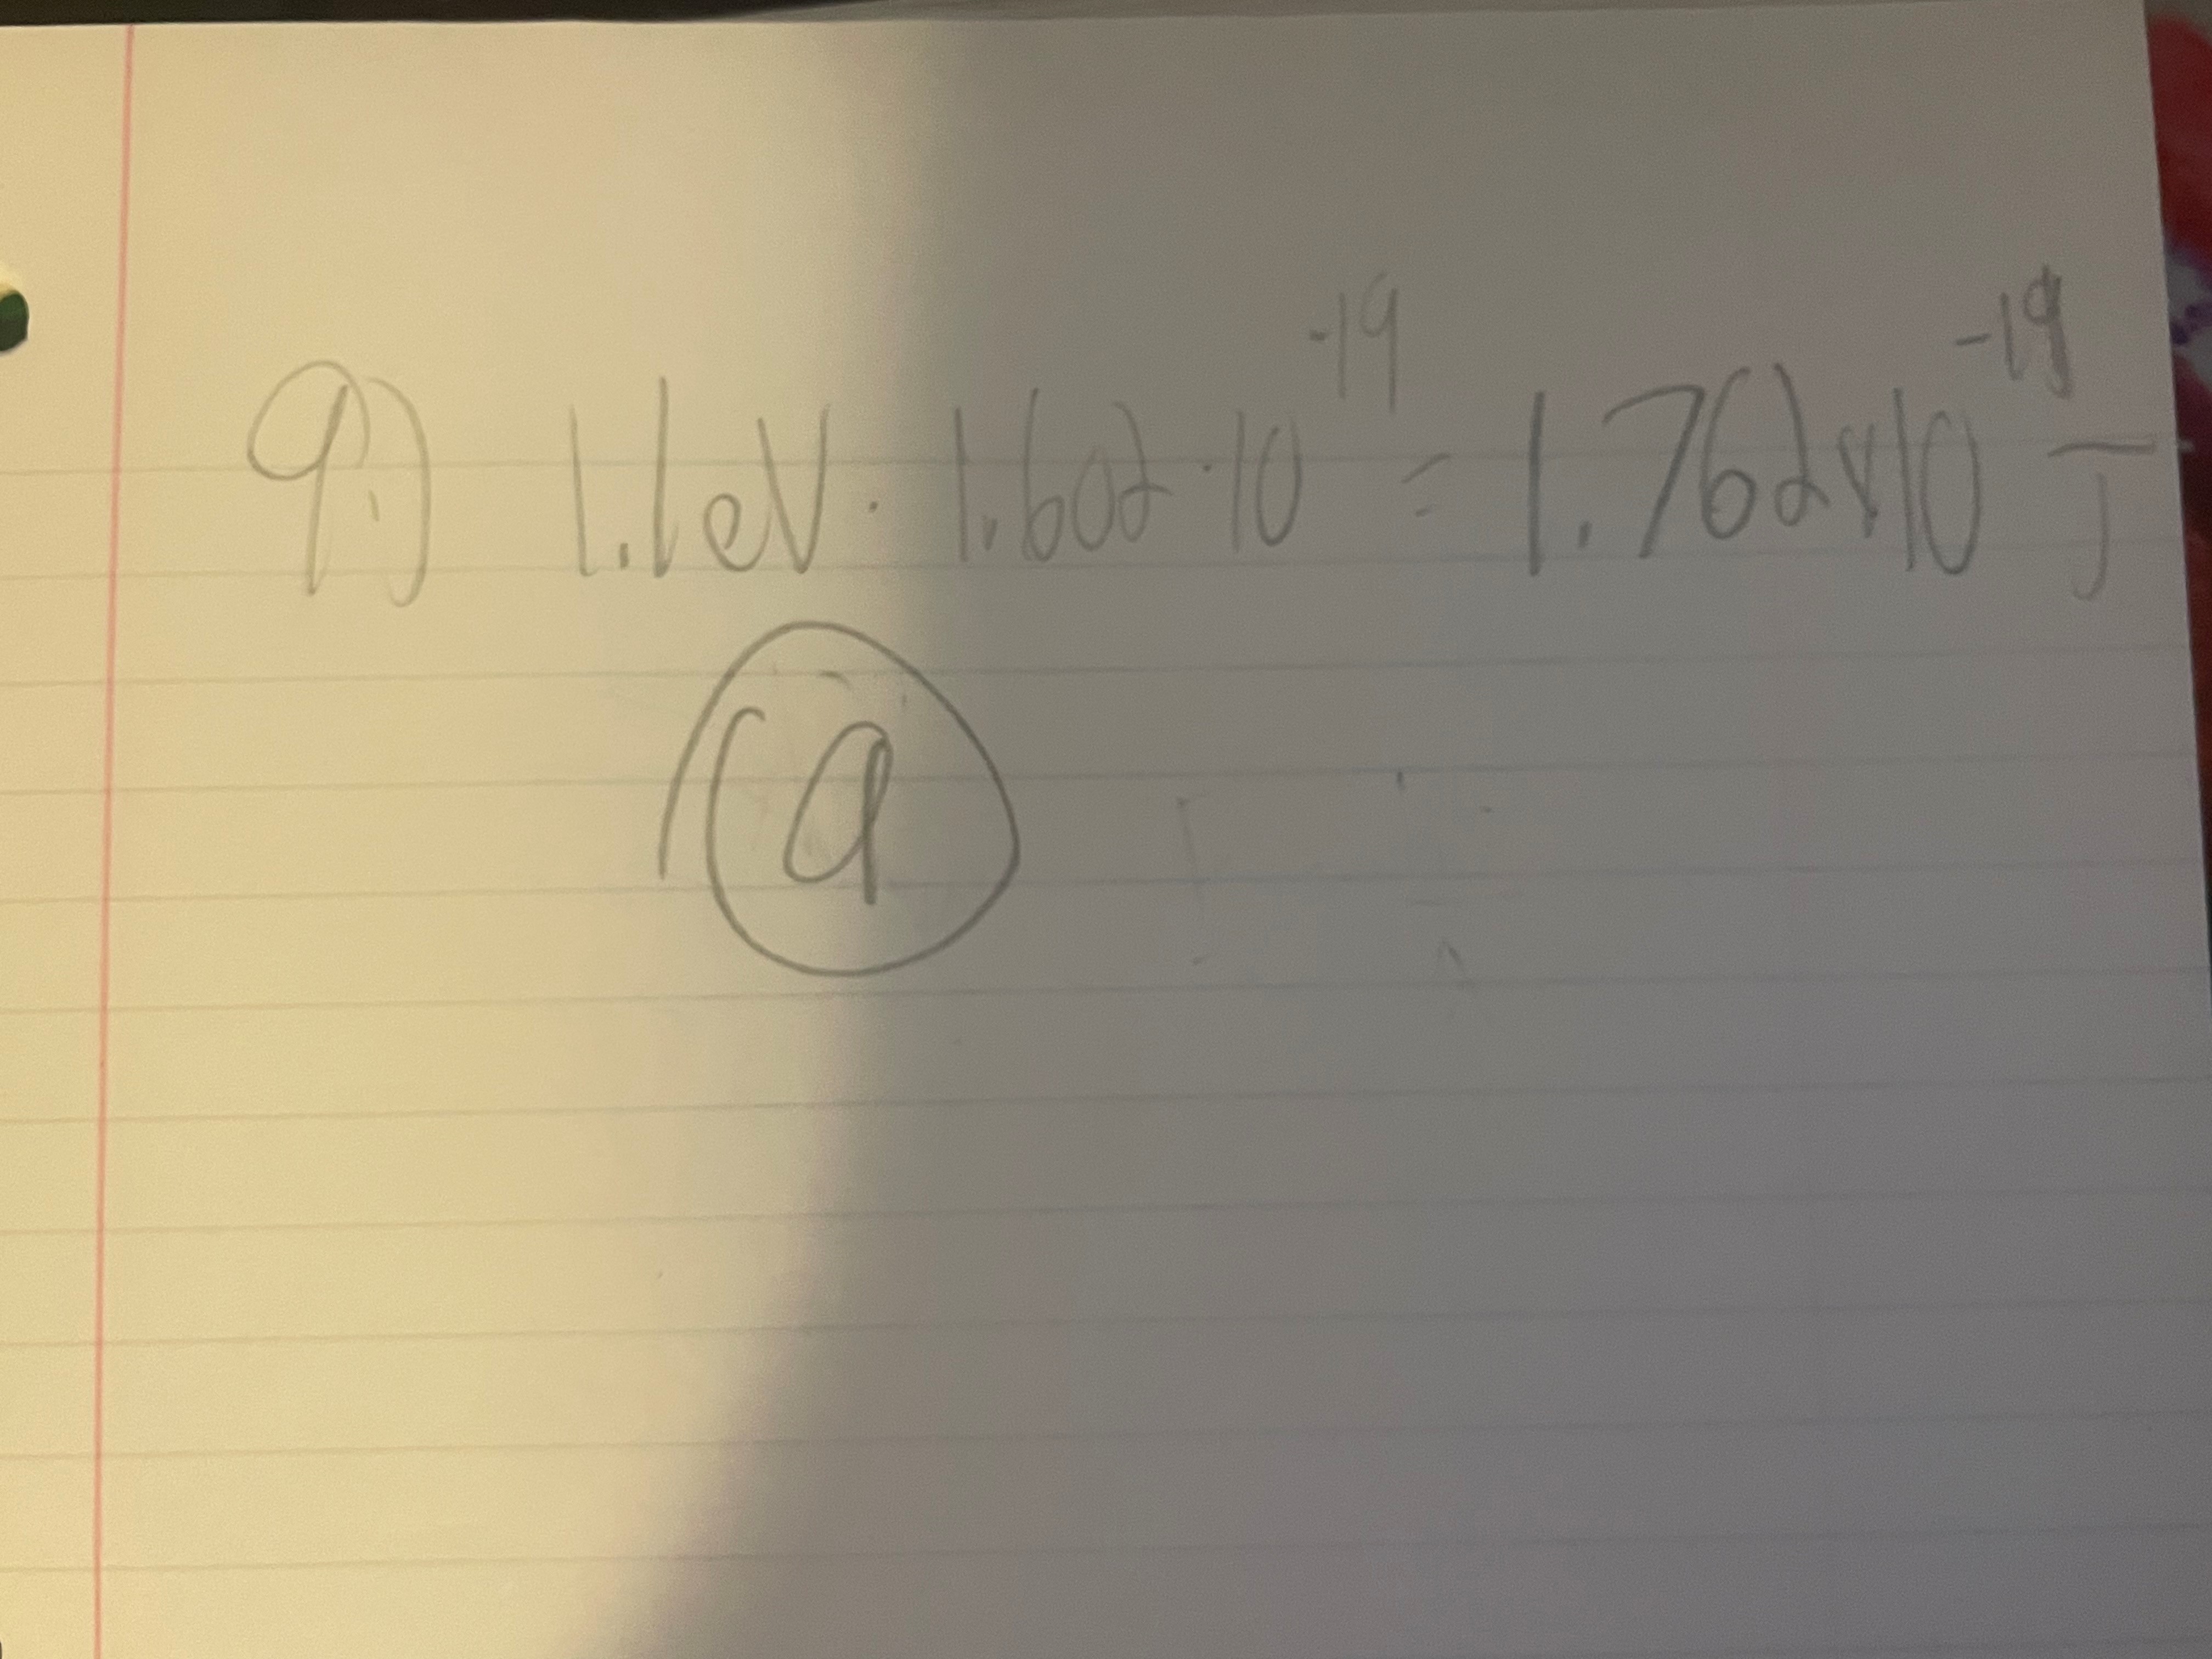 9.) 1.1eV · 1.602·10^-19 = 1.762x10^-19 J
(a